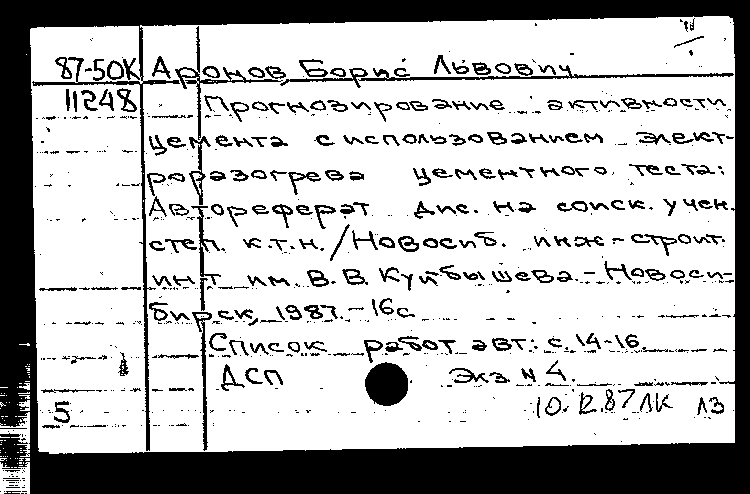 87-50К Аронов, Борис Львович
11248 Прогнозирование активности
цемента с использованием элект-
роразогрева цементного теста:
Автореферат дис. на соиск. учен.
степ. к.т.н. / Новосиб. инж-строит.
ин-т им. В. В. Куйбышева - Новоси-
бирск, 1987. - 16с
Список работ авт.: с. 14-16.
ДСП Экз N 4.
5 10.12.87 ЛК ЛЗ